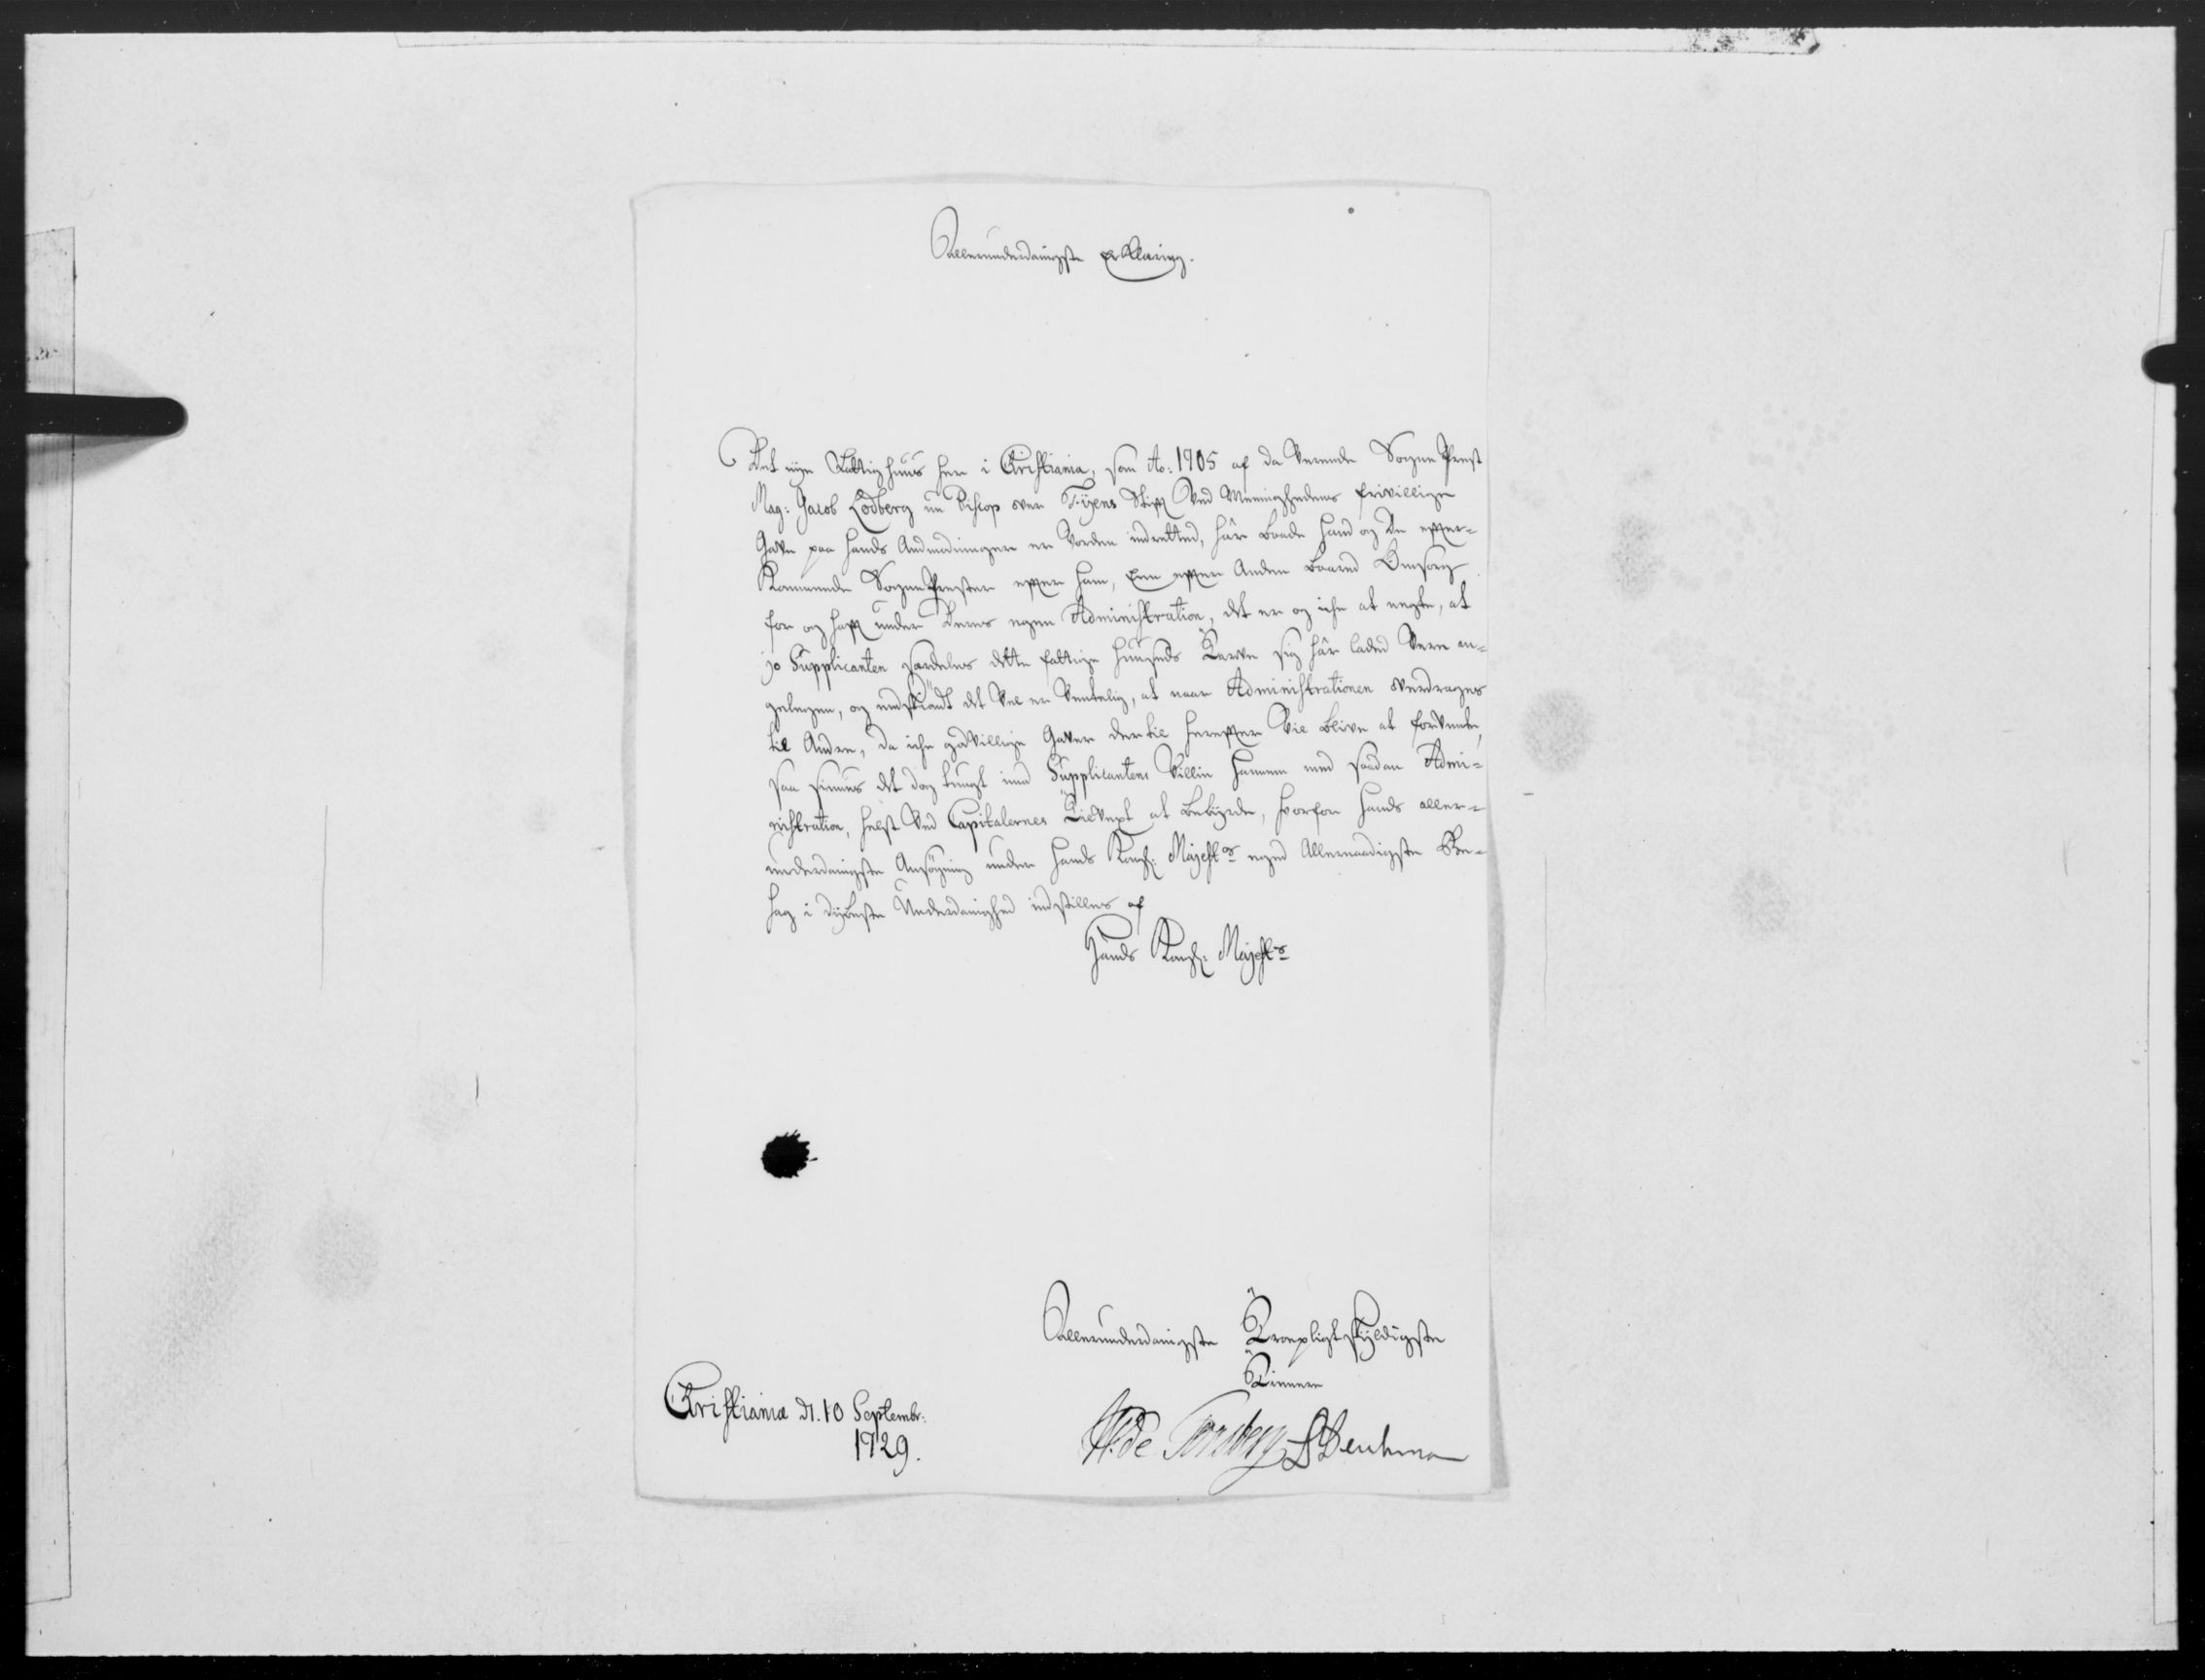 Allerunderdanigste erklæring.
Det nye Fattighuus her i Christiania, som Ao: 1705 af da Værende Sogne Prest
Mag: Jacob Lodberg nu Biscop over Fyens Stift Ved Meenighedens frivillige
Gave paa hands Anmodninger er Vorden indretted, hâr baade hand og De effter-
kommende Sogne Prester effter ham, Een effter Anden baared Omsorg
for og hafft under Deres egen Administration, det er og iche at negte, at
jo Supplicanten særdeles dette fattige Huuseds Tarve sig hâr laded Være an-
gelegen, og endskiöndt det Vel er Ventelig, at naar Administrationen overdrages
til Andre, da iche godvillige Gaver dertil hereffter Vil blive at forvente,
saa siunes det dog tungt imod Supplicantens Villie hannem med saadan Admi-
nistration, helst Ved Capitalernes Tilvext at bebyrde, hvorfor hands aller-
underdanigste Ansøgning under hands Kongl: Majestts eged Allernaadigste Be-
hag i dybeste Underdanighed indstilles af
Hands Kongl: Majestts
Allerunderdanigste Troepligtskyldigste
Tiennere
Christiania d. 10 Septembr:
1729.
W. de Tonsberg B Deichman